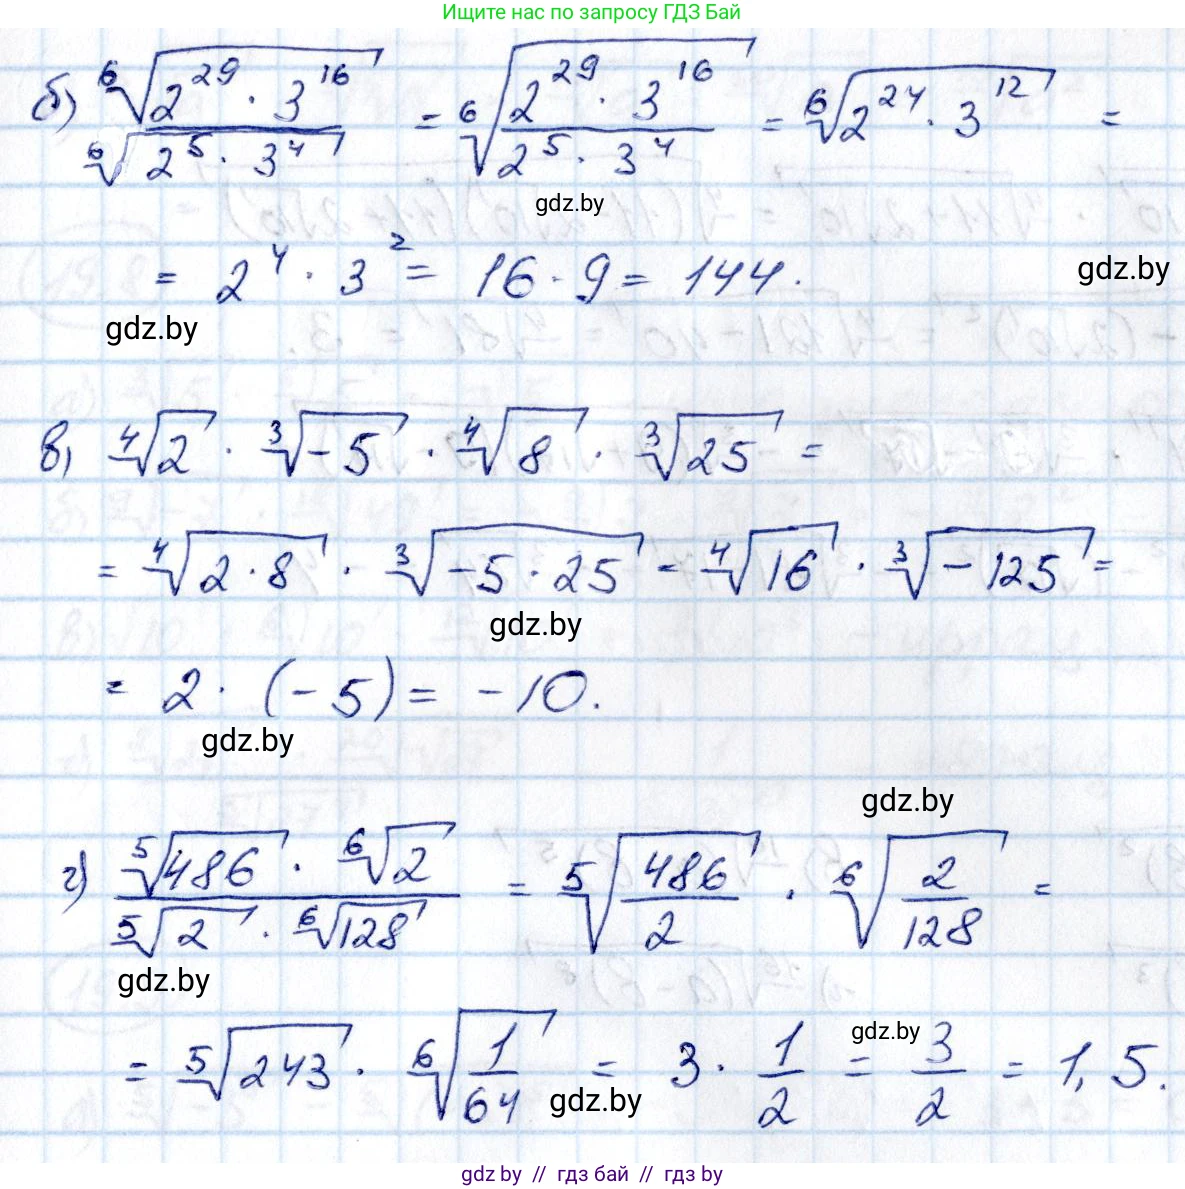 Ищите нас по запросу ГДЗ Бай
б) ⁶√(2²⁹ · 3¹⁶) / ⁶√(2⁵ · 3⁴) = ⁶√((2²⁹ · 3¹⁶) / (2⁵ · 3⁴)) = ⁶√(2²⁴ · 3¹²) =
gdz.by
= 2⁴ · 3² = 16 · 9 = 144.
gdz.by
gdz.by
в) ⁴√2 · ³√-5 · ⁴√8 · ³√25 =
= ⁴√(2 · 8) · ³√(-5 · 25) = ⁴√16 · ³√-125 =
gdz.by
= 2 · (-5) = -10.
gdz.by
gdz.by
г) (⁵√486 · ⁶√2) / (⁵√2 · ⁶√128) = ⁵√(486/2) · ⁶√(2/128) =
gdz.by
= ⁵√243 · ⁶√(1/64) = 3 · 1/2 = 3/2 = 1,5.
gdz.by
gdz.by
gdz.by // гдз бай // гдз by